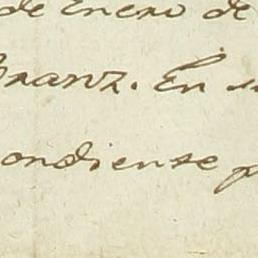 de Enero de
Branz. En s
ondiente p